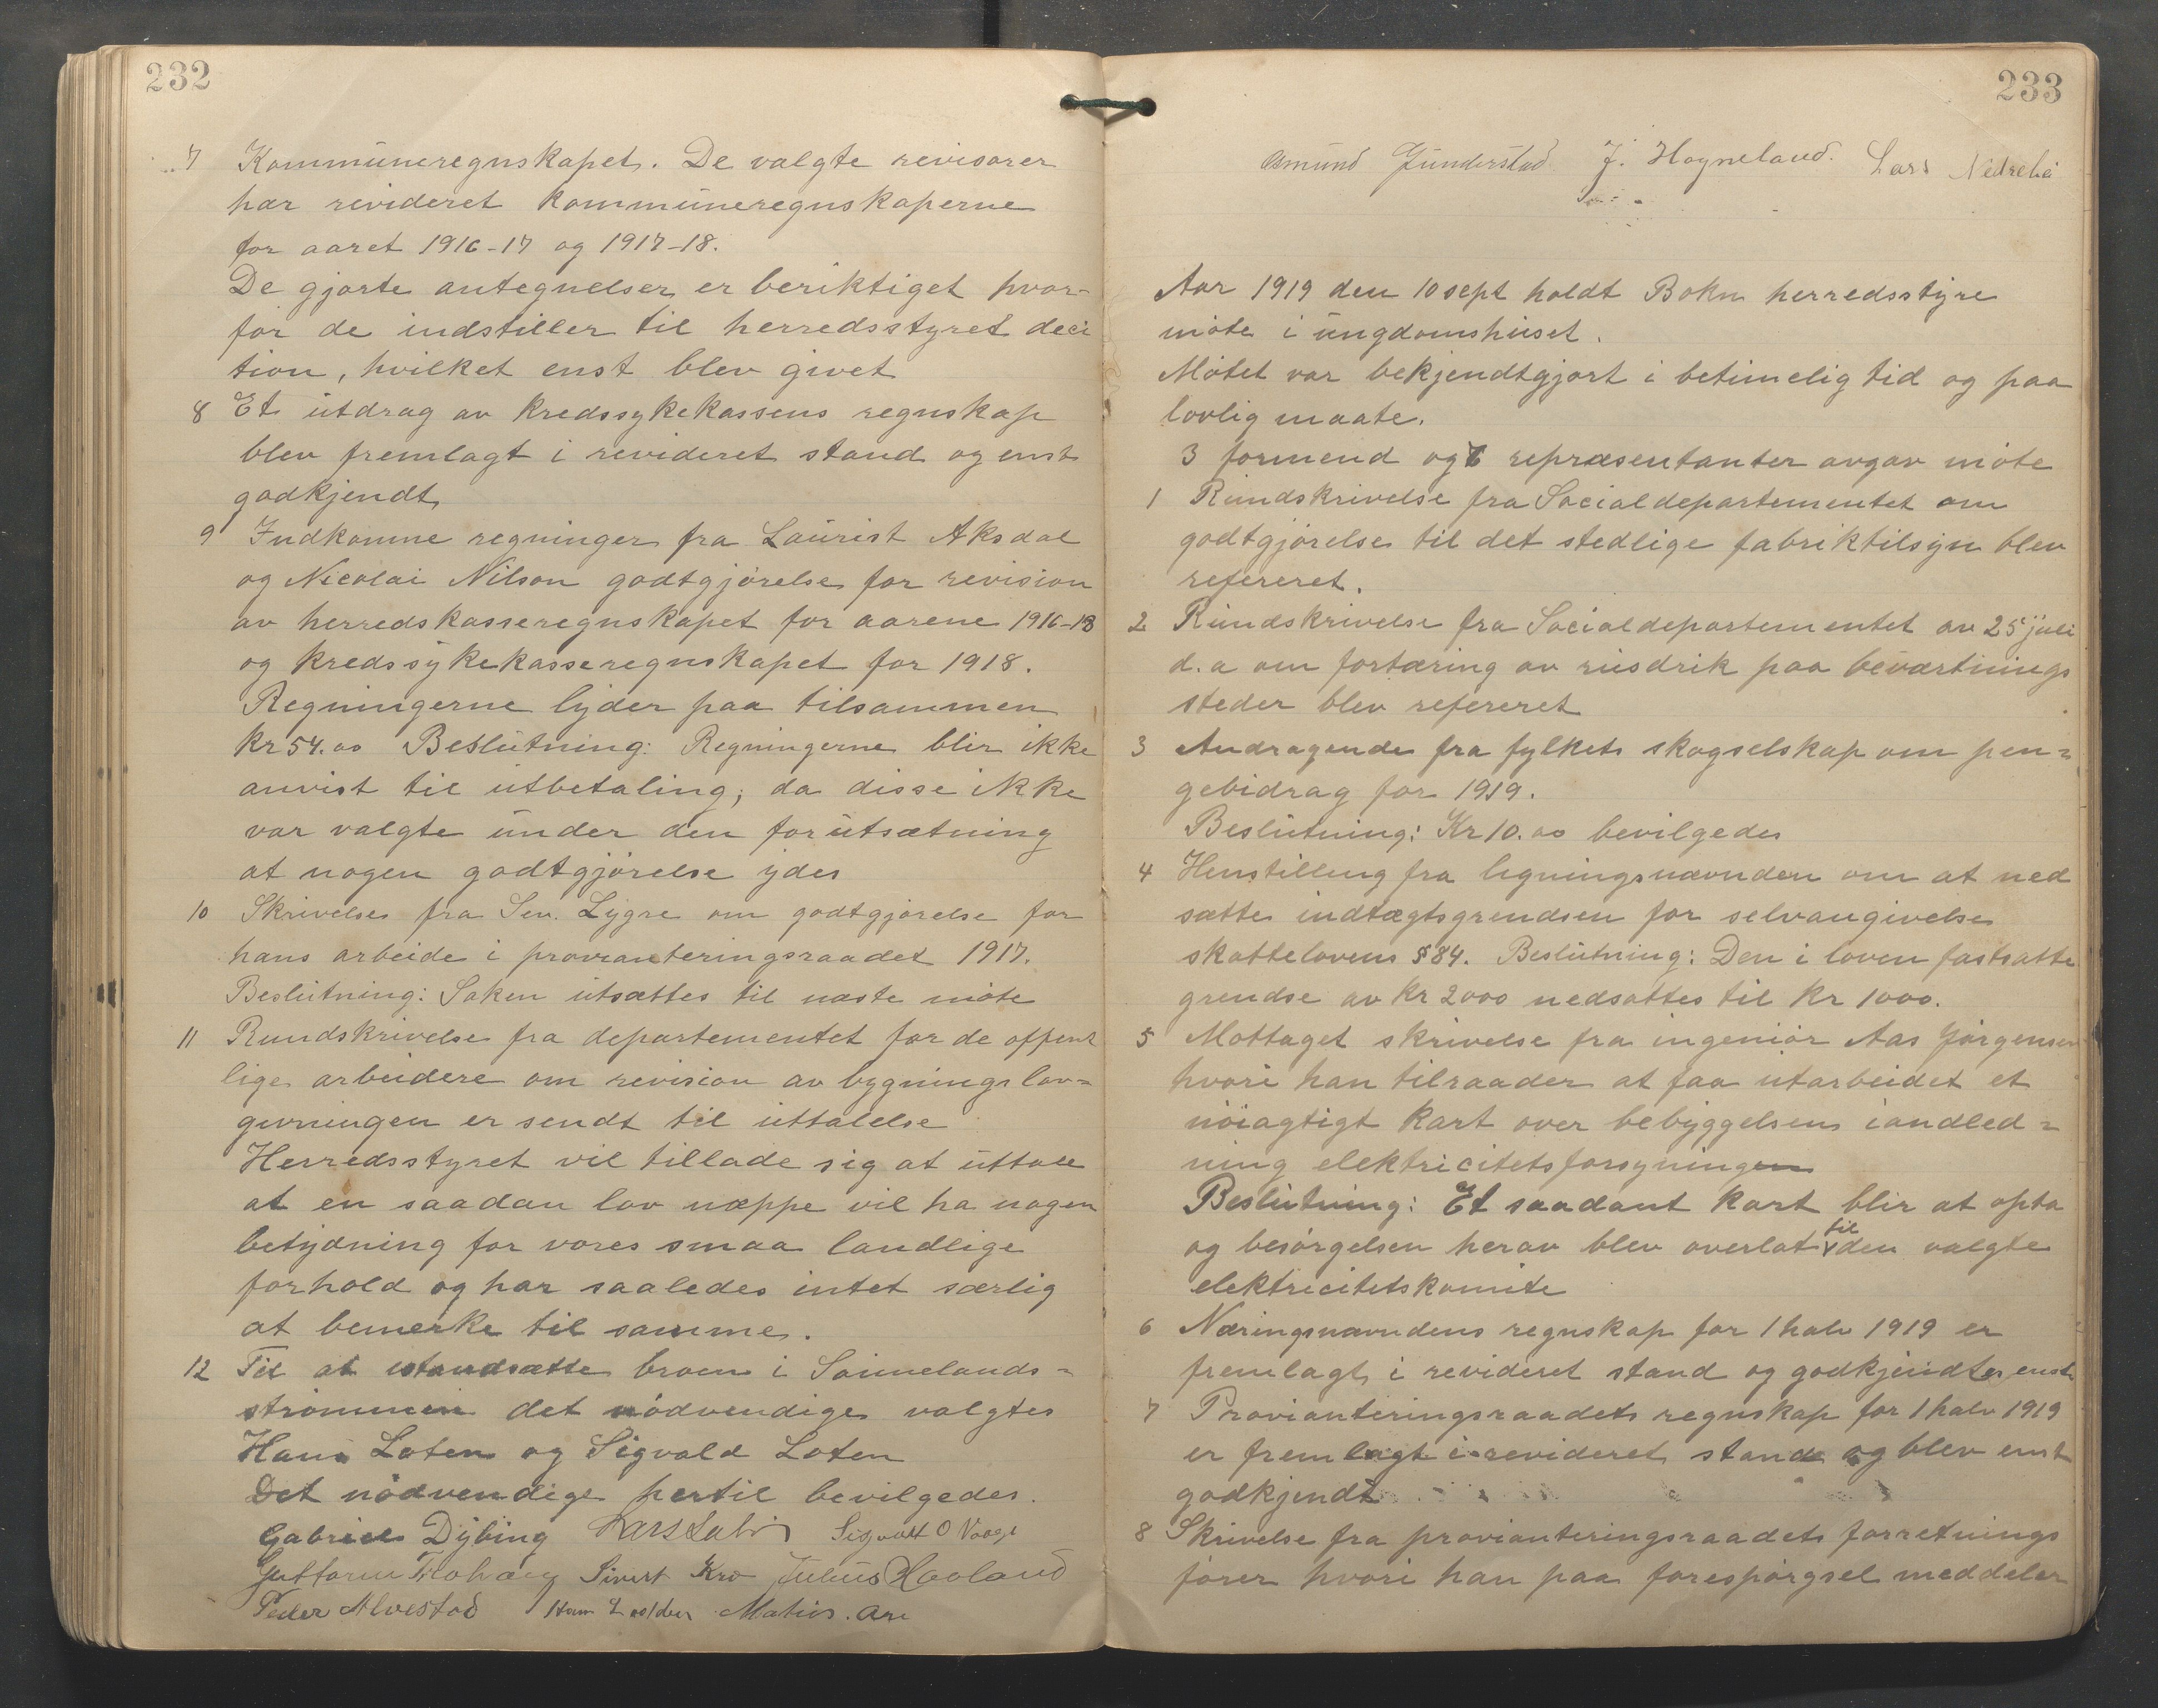 232
7 Kommuneregnskapet. De valgte revisorer
har revideret kommuneregnskaperne
for aaret 1916-17 og 1917-18.
De gjorte antegnelser er beriktiget hvor-
for de indstiller til herredsstyret deci
tion, hvilket enst blev givet
8 Et utdrag av kredssykekassens regnskap
blev fremlagt i revideret stand og enst
godkjendt
9 Indkomne regninger fra Laurist Aksdal
og Nicolai Nilson godtgjørelse for revision
av herredskasseregnskapet for aarene 1916-18
og kredssykekasseregnskapet for 1918.
Regningerne lyder paa tilsammen
kr 54.00 Beslutning: Regningerne blir ikke
anvist til utbetaling, da disse ikke
var valgte under den forutsætning
at nogen godtgjørelse ydes
10 Skrivelse fra Sev. Lygre om godtgjørelse for
hans arbeide i provianteringsraadet 1917.
Beslutning: Saken utsættes til næste møte
11 Rundskrivelse fra departementet for de offent
lige arbeidere om revision av bygningslov=
givningen er sendt til uttalelse
Herredsstyret vil tillade sig at uttale
at en saadan lov næppe vil ha nogen
betydning for vores smaa landlige
forhold og har saaledes intet særlig
at bemerke til samme.
12 Til at istandsætte broen i Sønnelands=
strømmen det nødvendige valgtes
Hans Loten og Sigvald Loten
Det nødvendige hertil bevilgedes.
Gabriel Dybing Sigvalt O Vaage
Guttorm Sivert Kro Julius Havland
Peder Alvestad Hans Matias. Are
233
Asmund Gunderstad J. Hogneland. Lars Nedrebø
Aar 1919 den 10 sept holdt Bokn herredsstyre
møte i ungdomshuset.
Møtet var bekjendtgjort i betimelig tid og paa
lovlig maate.
3 formend og 6 repræsentanter avgav møte
1 Rundskrivelse fra Socialdepartementet om
godtgjørelse til det stedlige fabriktilsyn blev
refereret.
2 Rundskrivelse fra Socialdepartementet av 25 juli
d.a om fortæring av rusdrik paa beværtnings
steder blev refereret
3 Andragende fra fylkets skogselskap om pen=
gebidrag for 1919.
Beslutning: Kr 10.00 bevilgedes
4 Henstilling fra ligningsnævnden om at ned
sætte indtægtsgrendsen for selvangivelse
skattelovens § 84. Beslutning: Den i loven fastsatte
grendse av kr 2000 nedsattes til kr 1000.
5 Mottaget skrivelse fra ingeniør Aas Jørgensen
hvori han tilraader at faa utarbeidet et
nøiagtigt kart over bebyggelsen iandled=
ning elektricitetsforsyningen
Beslutning: Et saadant kart blir at opta
og besørgelsen herav blev overlat til den valgte
elektricitetskomite
6 Næringsnævndens regnskap for 1 halv 1919 er
fremlagt i revideret stand og godkjendtes enst
7 Provianteringsraadets regnskap for 1 halv 1919
er fremlagt i revideret stand og blev enst
godkjendt
8 Skrivelse fra provianteringsraadets forretnings
fører hvori han paa forespørgsel meddeler